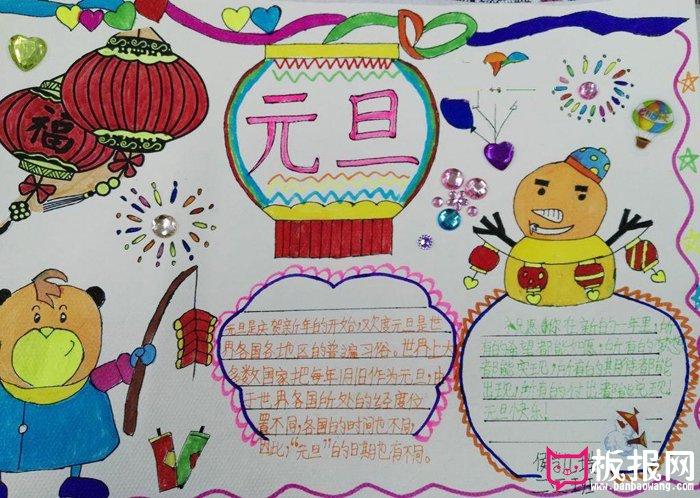 福
元旦
元旦是庆贺新年的开始,欢度元旦是世
界各国各地区的普遍习俗。世界上大
多数国家把每年1月1日作为元旦,由
于世界各国所处的经度位
置不同,各国的时间也不同,
因此,“元旦”的日期也有不同。
祝愿你在新的一年里,所
有的希望都能如愿,所有的梦想
都能实现,所有的期待都能
出现,所有的付出都能兑现!
元旦快乐!
板报网
www.banbaowang.com